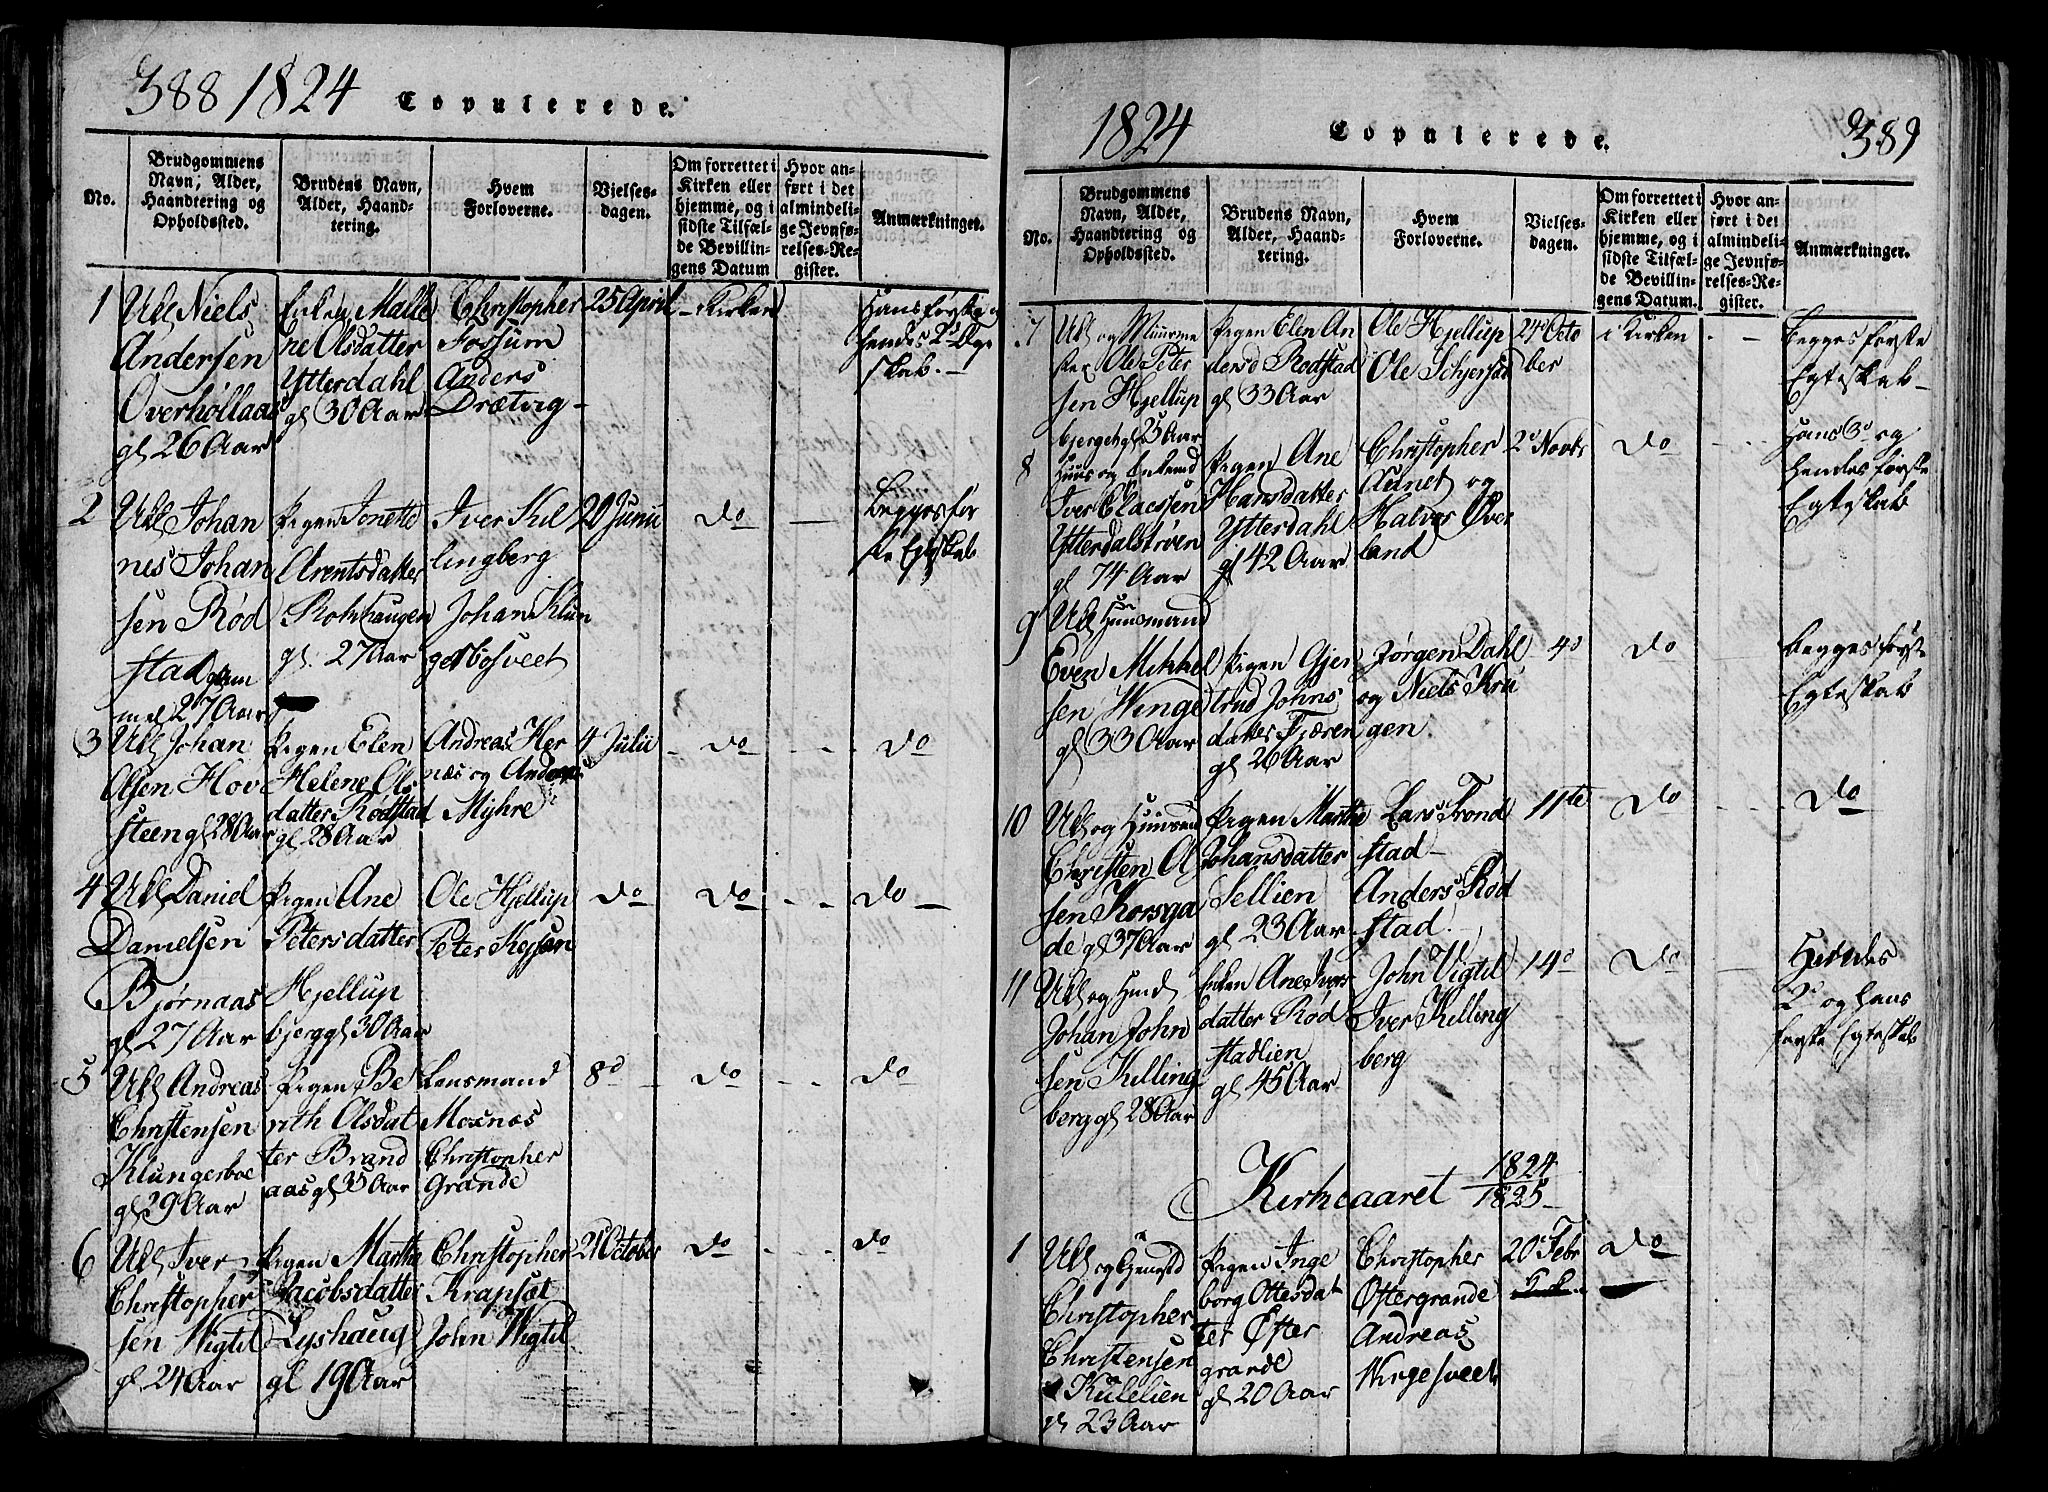 388 1824 Copulerede.
No.
Brudgommens
Navn, Alder,
Haandtering og
Opholdssted.
Brudens Navn,
Alder, Haand-
tering.
Hvem
Forloverne.
Vielses-
dagen.
Om forrettet i
Kirken eller
hjemme, og i
sidste Tilfæl-
de Bevillin-
gens Datum
Hvor an-
ført i det
almindeli-
ge Jevnfø-
relses-Re-
gister.
Anmærkninger.
1
Niels
Andersen
Overhollaas
gl 26 Aar
Enken Malle
ne Olsdatter
Ytterdahl
gl 30 Aar
Christopher
Fossum
Anders
Drætvig
25 April
Kirken
Hans første og
hendes 2d Ægte
skab.
2
Johan
nes Johan
sen Rød
stad
27 Aar
Pigen Jonette
Arentsdatter
gl. 27 Aar
Iver Kil
lingberg
Johan Klun
gerbosveet
20 Junii
Do
Begges før
ste Egteskab
3
Johan
Olsen Hov
steen gl 28 Aar
Pigen Elen
Helene Ols
datter Rødstad
gl 28 Aar
Andreas Her
næs og Anders
Myhre
4 Julii
Do
Do
4
Daniel
Danielsen
Bjørnaas
gl 27 Aar
Pigen Ane
Petersdatter
Hjellup
bjerg gl 30 Aar
Ole Hjellup
Peter
Do
Do
Do
5
Andreas
Christensen
Klungerboe
gl 29 Aar
Pigen Be
rith Olsdat
ter Brand
aas gl 35 Aar
Lensmand
Moxnæs
Christopher
Grande
8d
Do
Do
6
Iver
Christopher
sen Wigtil
gl 24 Aar
Pigen Martha
Jacobsdatter
Lyshaug
gl 19 Aar
Christopher
Krapsæt
John Wigtil
21 October
Do
Do
1824 Copulerede. 389
No.
Brudgommens
Navn, Alder,
Haandtering og
Opholdssted.
Brudens Navn,
Alder, Haand-
tering.
Hvem
Forloverne.
Vielses-
dagen.
Om forrettet i
Kirken eller
hjemme, og i
sidste Tilfæl-
de Bevillin-
gens Datum.
Hvor an-
ført i det
almindeli-
ge Jevnfø-
relses-Re-
gister.
Anmærkninger.
7
og Muurme
ster Ole Peter
sen Hjellup
bjerget gl 25 Aar
Pigen Elen An
dersd Rodstad
gl 33 Aar
Ole Hjellup
Ole
24d Octo
ber
i Kirken
Begges første
Egteskab
8
Iver Elaesen
Ytterdalstrøen
gl 74 Aar
Pigen Ane
Hansdatter
Ytterdahl
gl 42 Aar
Christopher
Aunet og
Halvor Over
land
2d Novbr
Do
Hans 3d og
Hendes første
Egteskab
9
Huusmand
Even Mikkel
sen Winge
gl 33 Aar
Pigen Gjer
trud Johns
datter Fjæren
gl 26 Aar
Jørgen Dahl
og Niels Kru
gen.
4d
Do
Begges første
Egteskab
10
Christen Ol
sen Korsga
de gl 37 Aar
Pigen Martha
Johansdatter
Sellien
gl 23 Aar
Lars Trond
stad
Anders Rød
stad.
11te
Do
Do
11
Johan John
sen Killing
berg gl 28 Aar
Enken Ane Ivers
datter Rød
stadlien
gl 45 Aar
John Vigtil
Iver Killing
berg
14d
Do
Hendes
2d og hans
første Egteskab
Kirkeaaret 1824
1825
1
Christopher
Christensen
Kulelien
gl 23 Aar
Pigen Inge
borg Ottesdat
ter Øster
grande
gl 20 Aar
Christopher
Østergrande
Andreas
Wirgesveet
20 Febr
Do